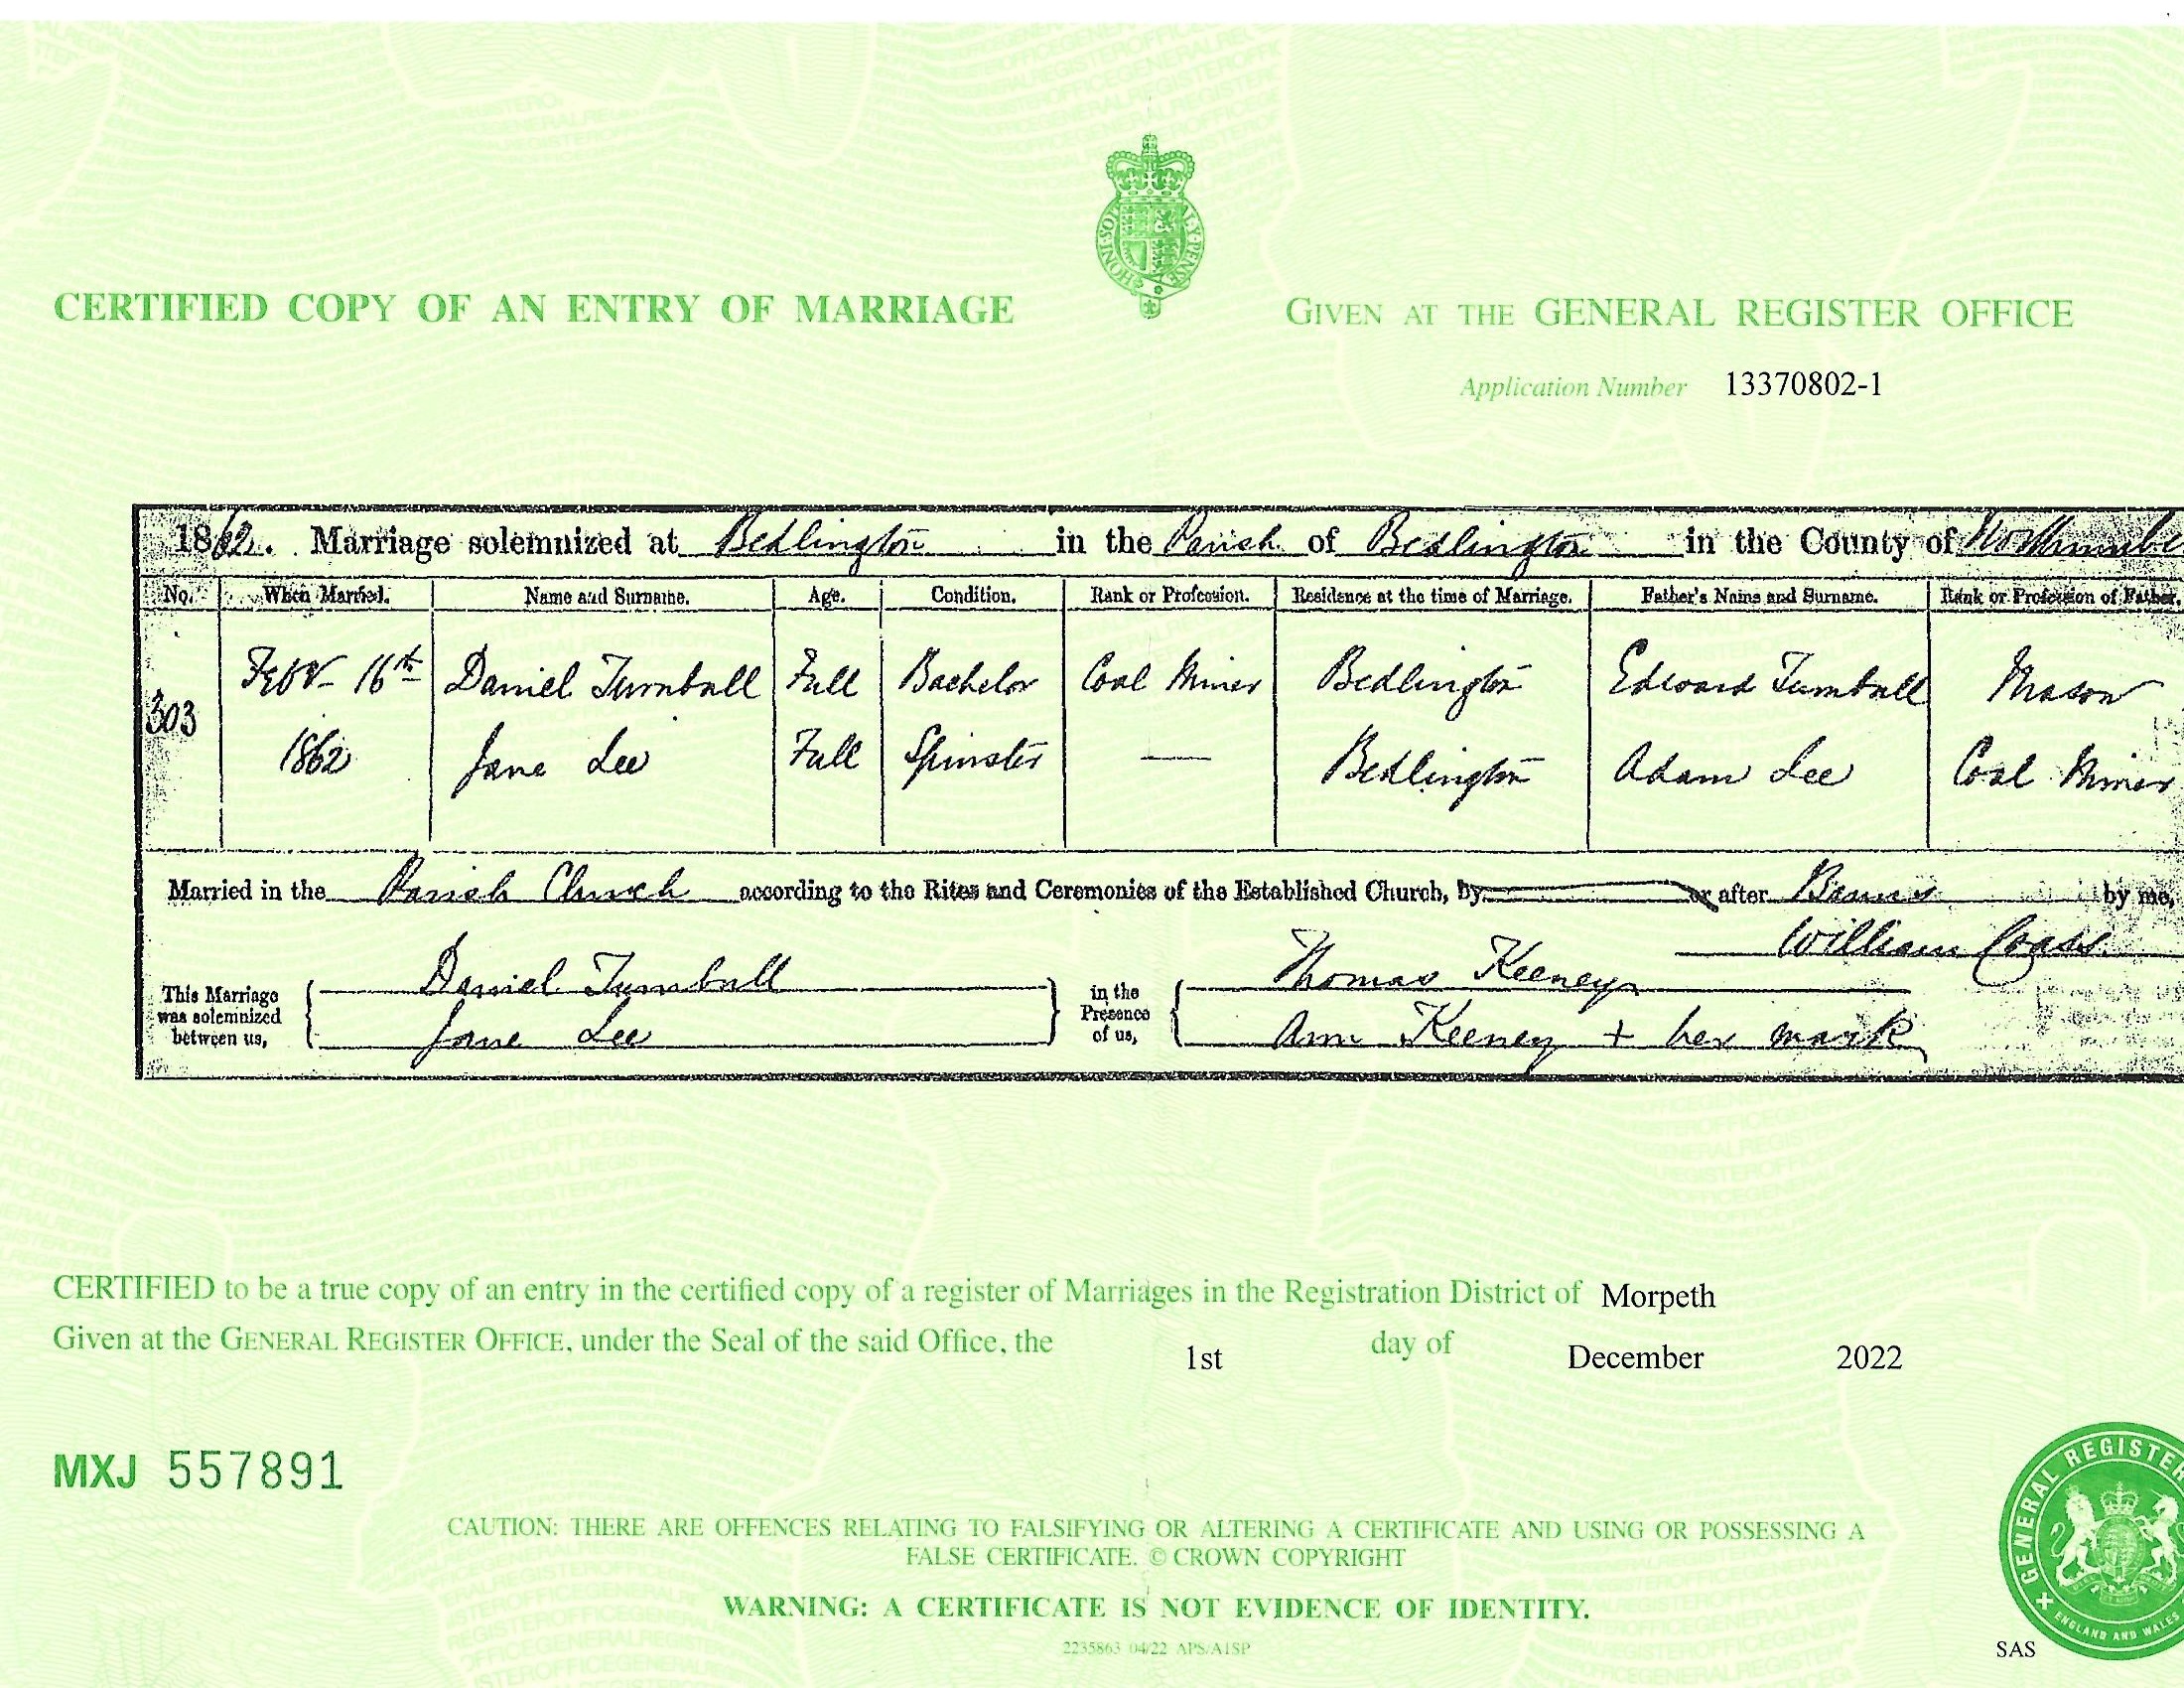 CERTIFIED COPY OF AN ENTRY OF MARRIAGE
GIVEN AT THE GENERAL REGISTER OFFICE
Application Number 13370802-1
1862. Marriage solemnized at Bedlington in the Parish of Bedlington in the County of
No. When Married. Name and Surname. Age. Condition. Rank or Profession. Residence at the time of Marriage. Father's Name and Surname. Rank or Profession of Father.
303 Feby 16th Daniel Turnbull Full Bachelor Coal Miner Bedlington Edward Turnbull Mason
1862 Jane Lee Full Spinster — Bedlington Adam Lee Coal Miner
Married in the Parish Church according to the Rites and Ceremonies of the Established Church, by or after Banns by me,
William
This Marriage was solemnized between us,
Daniel Turnbull
Jane Lee
in the Presence of us,
Thomas Keeney
Ann Keeney + her mark
CERTIFIED to be a true copy of an entry in the certified copy of a register of Marriages in the Registration District of Morpeth
Given at the GENERAL REGISTER OFFICE, under the Seal of the said Office, the 1st day of December 2022
MXJ 557891
CAUTION: THERE ARE OFFENCES RELATING TO FALSIFYING OR ALTERING A CERTIFICATE AND USING OR POSSESSING A
FALSE CERTIFICATE. © CROWN COPYRIGHT
WARNING: A CERTIFICATE IS NOT EVIDENCE OF IDENTITY.
2235863 04/22 APS/A1SP
SAS
GENERAL REGISTER
ENGLAND AND WALES